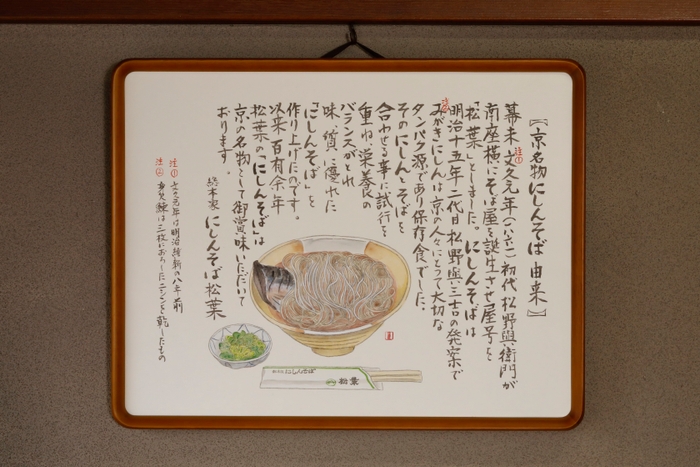 【京名物にしんそば由来】
幕末 文久元年(一八六一)初代 松野與衛門が
南座横にそば屋を誕生させ屋号を
「松葉」としました。にしんそばは
明治十五年二代目 松野與三吉の発案で
注二
みがきにしんは京の人々にとって大切な
タンパク源であり保存食でした。
そのにしんとそばを
合わせる事に試行を
重ね、栄養の
バランスがとれ
味、質に優れた
「にしんそば」を
作り上げたのです。
以来百有余年
松葉の「にしんそば」は
京の名物として御賞味いただいて
おります。
総本家 にしんそば 松葉
注一 文久元年は明治維新の八年前
注二 身欠鰊は三枚におろしたニシンを乾したもの
にしんそば
松葉